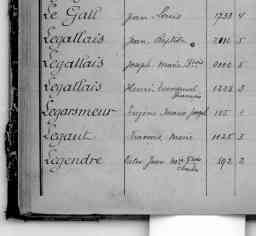 Le Gall Jean Louis 1738 4
Legallais Jean Baptiste 5
Legallais Joseph Marie 5
Legallais Henri Emmanuel 1223 3
Legarsmeur Eugène Marie Joseph 1
Legaut Francois Marie 1125 3
Legendre Victor Jean 692 2